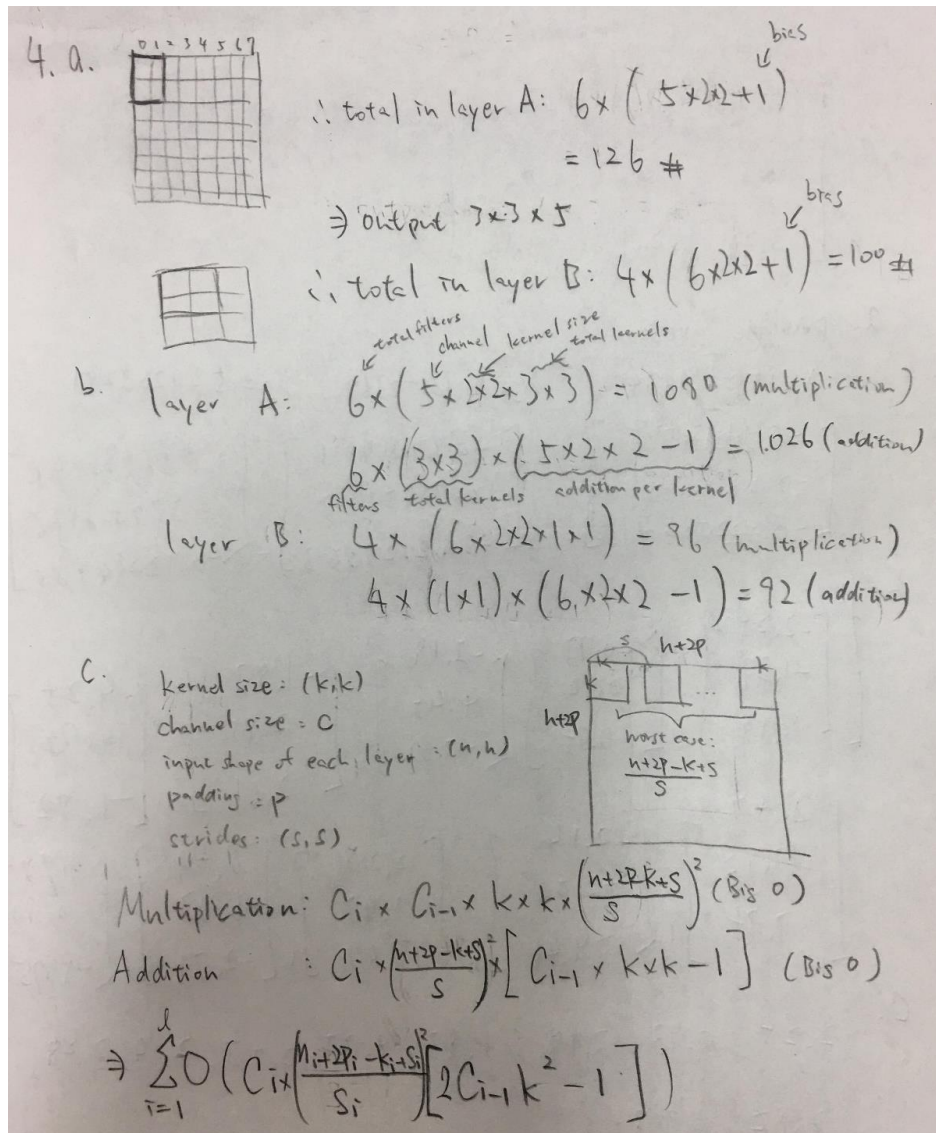 4. a.
0 1 2 3 4 5 6 7
bias
∴ total in layer A: 6 × ( 5 × 2×2 + 1 )
= 126 #
⇒ output 3 × 3 × 5
bias
∴ total in layer B: 4 × ( 6×2×2 + 1 ) = 100 #
total filters channel kernel size total kernels
b. layer A: 6 × ( 5 × 2×2 × 3 × 3 ) = 1080 (multiplication)
6 × (3×3) × ( 5 × 2 × 2 - 1 ) = 1026 (addition)
filters total kernels addition per kernel
layer B: 4 × ( 6 × 2×2×1×1 ) = 96 (multiplication)
4 × (1×1) × ( 6 × 2×2 - 1 ) = 92 (addition)
c.
kernel size : (k,k)
channel size = C
input shape of each layer : (n,n)
padding : p
strides : (s,s)
s n+2p
k k
k
n+2p
...
worst case:
(n+2p-k+s)/s
Multiplication: Ci × Ci-1 × k × k × ((n+2p-k+s)/s)² (Big O)
Addition : Ci × ((n+2p-k+s)/s)² × [ Ci-1 × k×k - 1 ] (Big O)
⇒ Σ_{i=1}^{l} O ( Ci × ((ni+2pi-ki+si)/si)² [ 2Ci-1 k² - 1 ] )